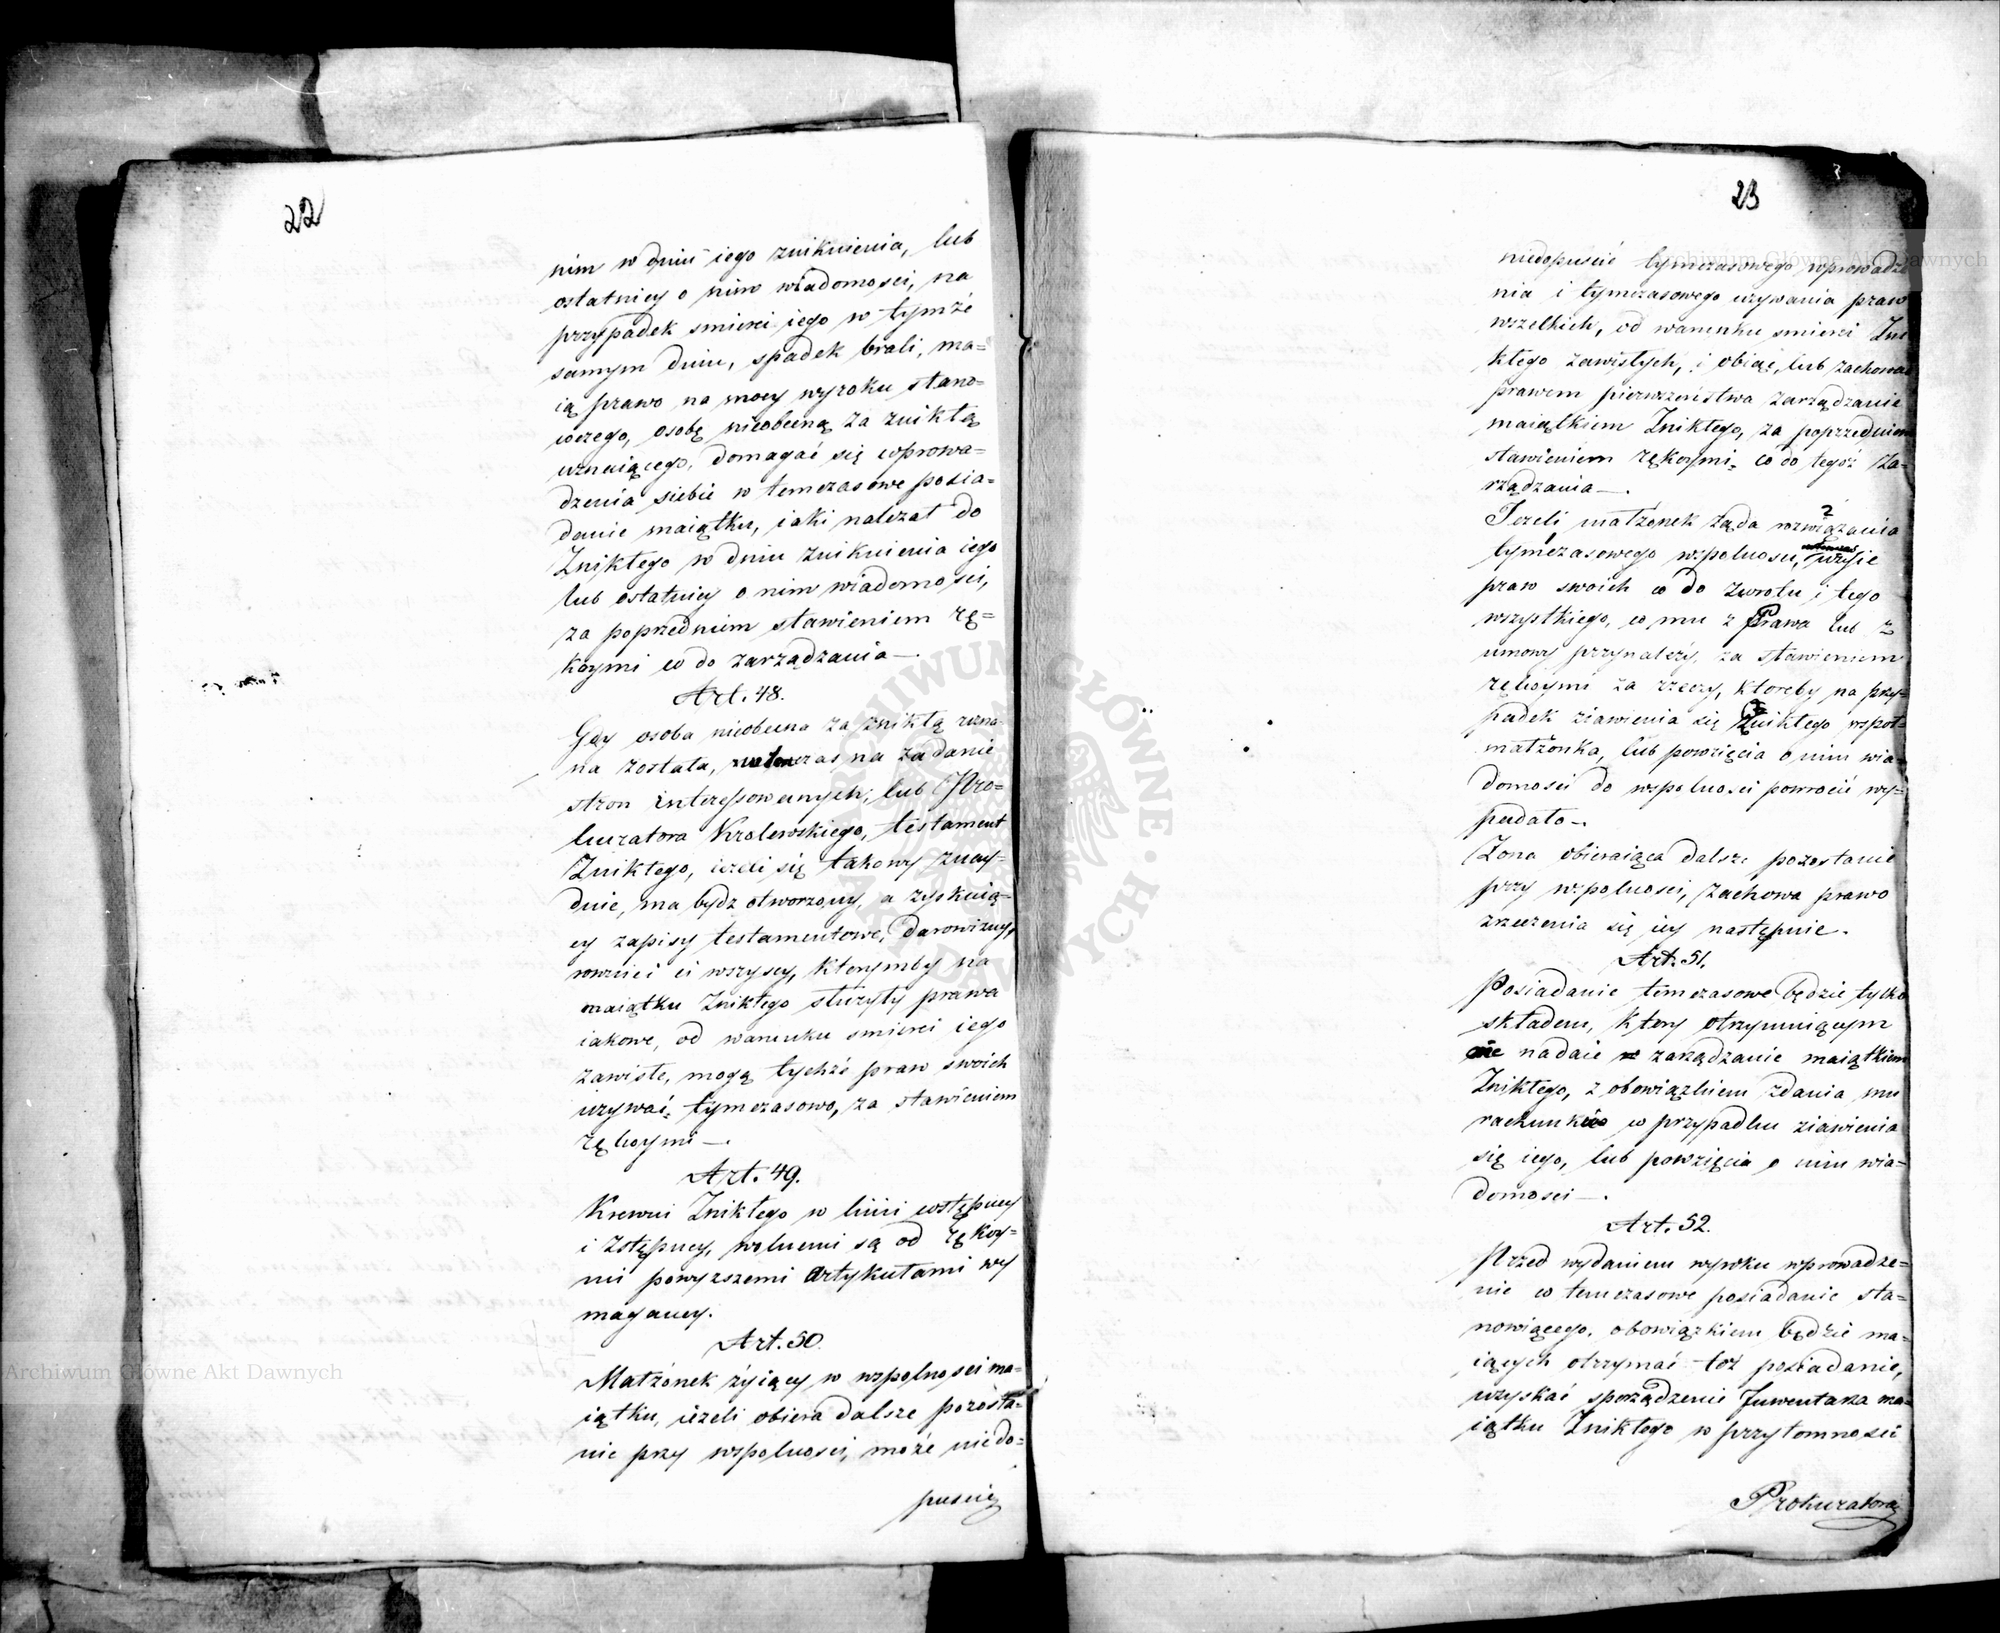 22
nim w dniu iego zniknienia, lub
ostatniey o nim wiadomosci, na
przypadek smierci iego w tymże
samym dniu, spadek brali, ma=
ią prawo na mocy wyroku stano=
wczego, osobę nieobecną za znikłą
uznaiącego, domagać się wprowa=
dzenia siebie w temczasowe posia=
danie maiątku, iaki należał do
Znikłego w dniu zniknienia iego
lub ostatniey o nim wiadomości,
za poprzedniem stawieniem rę=
koymi co do zarządzania—.
Art. 48.
Gdy osoba nieobecna za znikłą uzna=
na została, natenczas na żądanie
stron interessowanych, lub Pro=
kuratora Krolewskiego, testament
Znikłego, ieżeli się takowy znay=
dnie, ma bydz otworzony, a zyskuią=
cy zapisy testamentowe, darowizny,
rownież ci wszyscy, ktorymby na
maiątku Znikłego służyły prawa
iakowe, od warunku smierci iego
zawisłe, mogą tychże praw swoich
używać tymczasowo, za stawieniem
rękoymi—.
Art. 49.
Krewni Znikłego w linii wstępney
i zstępney, wolnemi są od rękoy=
mi powyższemi Artykułami wy
maganey.
Art. 50.
Małżonek żyiący w wspolności ma=
iątku, ieżeli obiera dalsze pozosta=
nie przy wspolnosci, może niedo=
puscić
23
niedopuscić tymczasowego wprowadze
nia i tymczasowego używania praw
wszelkich, od warunku smierci Zni
kłego zawisłych, i obiąć, lub zachować
prawem pierwszeństwa zarządzanie
maiątkiem Znikłego, za poprzedniem
stawieniem rękoymi, co do tegoż Za=
rządzania—.
Ieżeli małżonek żąda rozwiązania
tymczasowego wspolnosci, użyie
praw swoich co do zwrotu i tego
wszystkiego, co mu z Prawa lub z
umowy przynależy, za stawieniem
rękoymi za rzeczy, ktoreby na przy=
padek ziawienia się Znikłego wspoł=
małżonka, lub powzięcia o nim wia=
domości do wspolnosci powrocić wy=
padało—.
Żona obieraiąca dalsze pozostanie
przy wspolnosci, zachowa prawo
zrzeczenia się iey następnie.
Art. 51.
Posiadanie temczasowe będzie tylko
składem, ktory otrzymuiącym
ie nadaie zarządzanie maiątkiem
Znikłego, z obowiązkiem zdania mu
rachunków w przypadku ziawienia
się iego, lub powzięcia o nim wia=
domosci—.
Art. 52.
Przed wydaniem wyroku wprowadze=
nie w temczasowe posiadanie sta=
nowiącego, obowiązkiem będzie ma=
iących otrzymać toż posiadanie,
uzyskać sporządzenie Inwentarza ma=
iątku Znikłego w przytomnosci
Prokuratora
Archiwum Główne Akt Dawnych
Archiwum Główne Akt Dawnych
ARCHIWUM GŁÓWNE AKT DAWNYCH